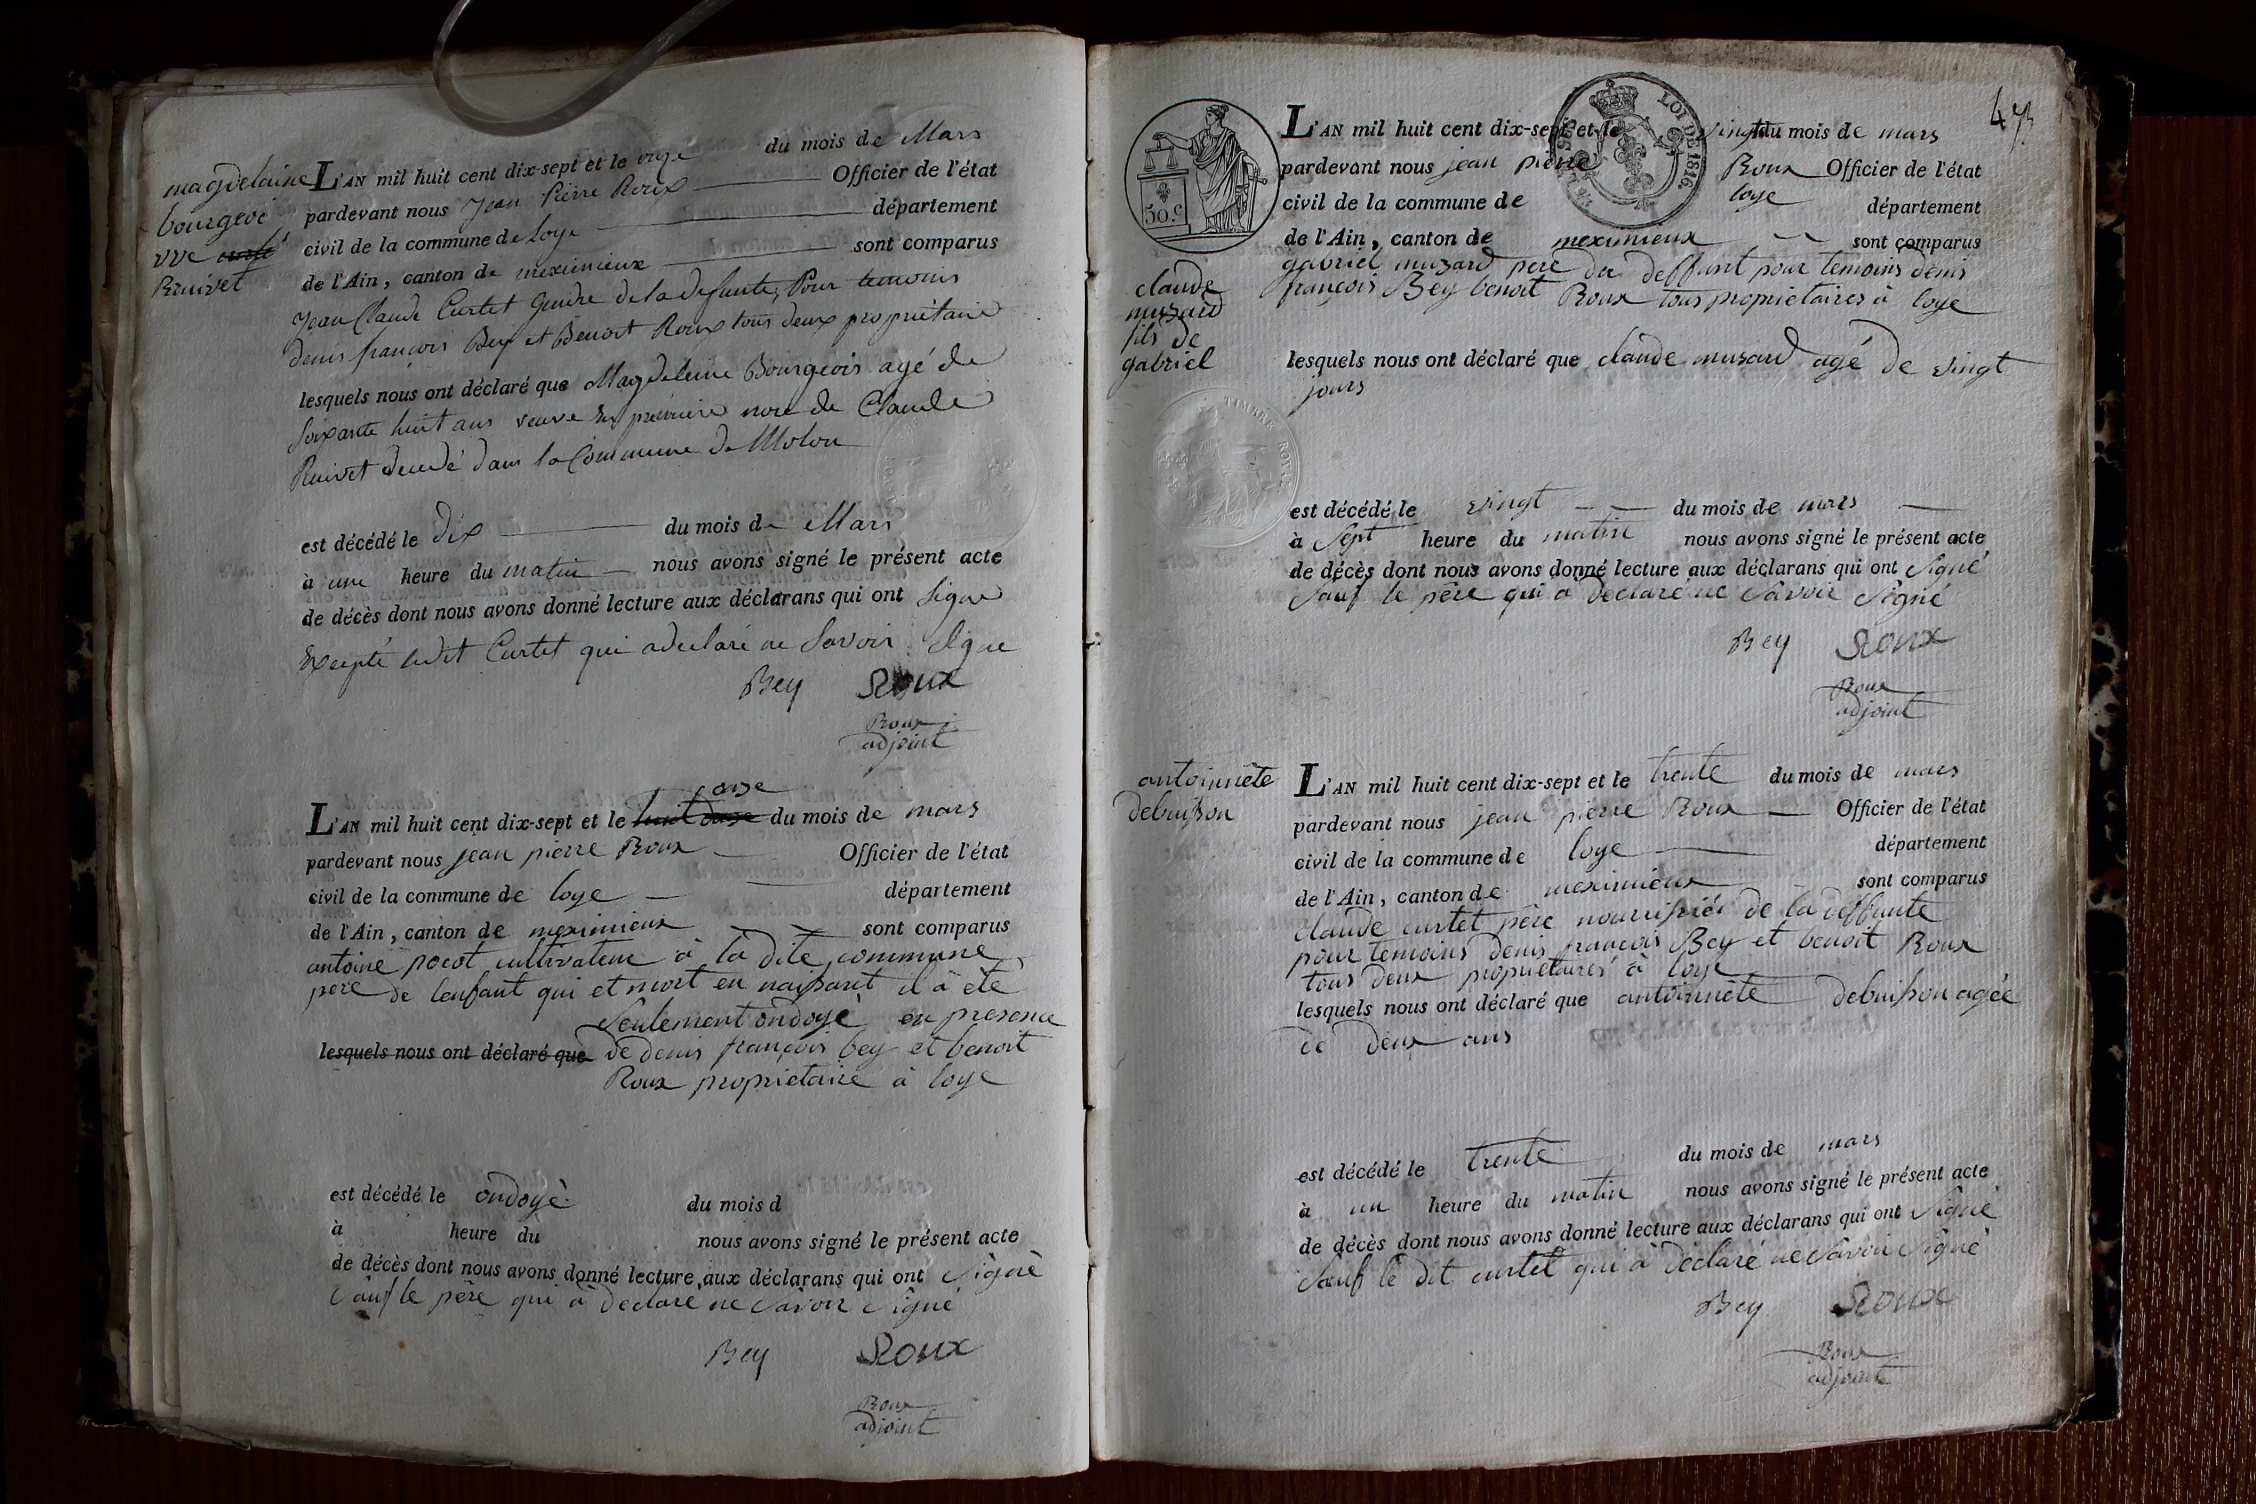 magdelaine
bourgeoi
vve curtet
Ruivet
L'AN mil huit cent dix-sept et le onze du mois de Mars
pardevant nous Jean Pierre Roux Officier de l'état
civil de la commune de loye département
de l'Ain, canton de meximieux sont comparus
Jean Claude Curtet Gendre de la defunte, Pour temoins
denis françois Bey et Benoit Roux tous deux propriétaire
lesquels nous ont déclaré que Magdeleine Bourgeois agé de
soixante huit ans veuve en première noce de Claude
Ruivet decedé dans la Commune de Molon
est décédé le dix du mois de Mars
à une heure du matin nous avons signé le présent acte
de décès dont nous avons donné lecture aux déclarans qui ont signé
Excepté ledit Curtet qui a declaré ne Savoir Signe
Bey Roux
Roux
adjoint
onze
L'AN mil huit cent dix-sept et le du mois de mars
pardevant nous jean pierre Roux Officier de l'état
civil de la commune de loye département
de l'Ain, canton de meximieux sont comparus
antoine pocot cultivateur à la dite commune
pere de lenfant qui et mort en naissant il à été
Seulement ondoyé en presence
lesquels nous ont déclaré que de denis françois bey et benoit
Roux proprietaire à loye
est décédé le ondoyé du mois d
à heure du nous avons signé le présent acte
de décès dont nous avons donné lecture aux déclarans qui ont signé
sauf le père qui à declaré ne savoir signé
Bey Roux
Roux
adjoint
47
50 c
LOI DE 1816.
L'AN mil huit cent dix-sept et le vingt du mois de mars
pardevant nous jean pierre Roux Officier de l'état
civil de la commune de loye département
de l'Ain, canton de meximieux sont comparus
gabriel muzard pere du deffunt pour temoins denis
françois Bey benoit Roux tous proprietaires à loye
claude
muzard
fils de
gabriel
lesquels nous ont déclaré que claude muzard agé de vingt
jours
TIMBRE ROYAL
est décédé le vingt du mois de mars
à Sept heure du matin nous avons signé le présent acte
de décès dont nous avons donné lecture aux déclarans qui ont signé
Sauf le père qui à declaré ne savoir signé
Bey Roux
Roux
adjoint
antoinnéte
debuisson
L'AN mil huit cent dix-sept et le trente du mois de mars
pardevant nous jean pierre Roux Officier de l'état
civil de la commune de loye département
de l'Ain, canton de meximieux sont comparus
claude curtet père nourrissié de la deffunte
pour temoins denis françois Bey et benoit Roux
tous deux proprietaires à loye
lesquels nous ont déclaré que antoinnéte debuisson agée
de deux ans
est décédé le trente du mois de mars
à un heure du matin nous avons signé le présent acte
de décès dont nous avons donné lecture aux déclarans qui ont signé
Sauf le dit curtet qui à déclaré ne savoir signé
Bey Roux
Roux
adjoint